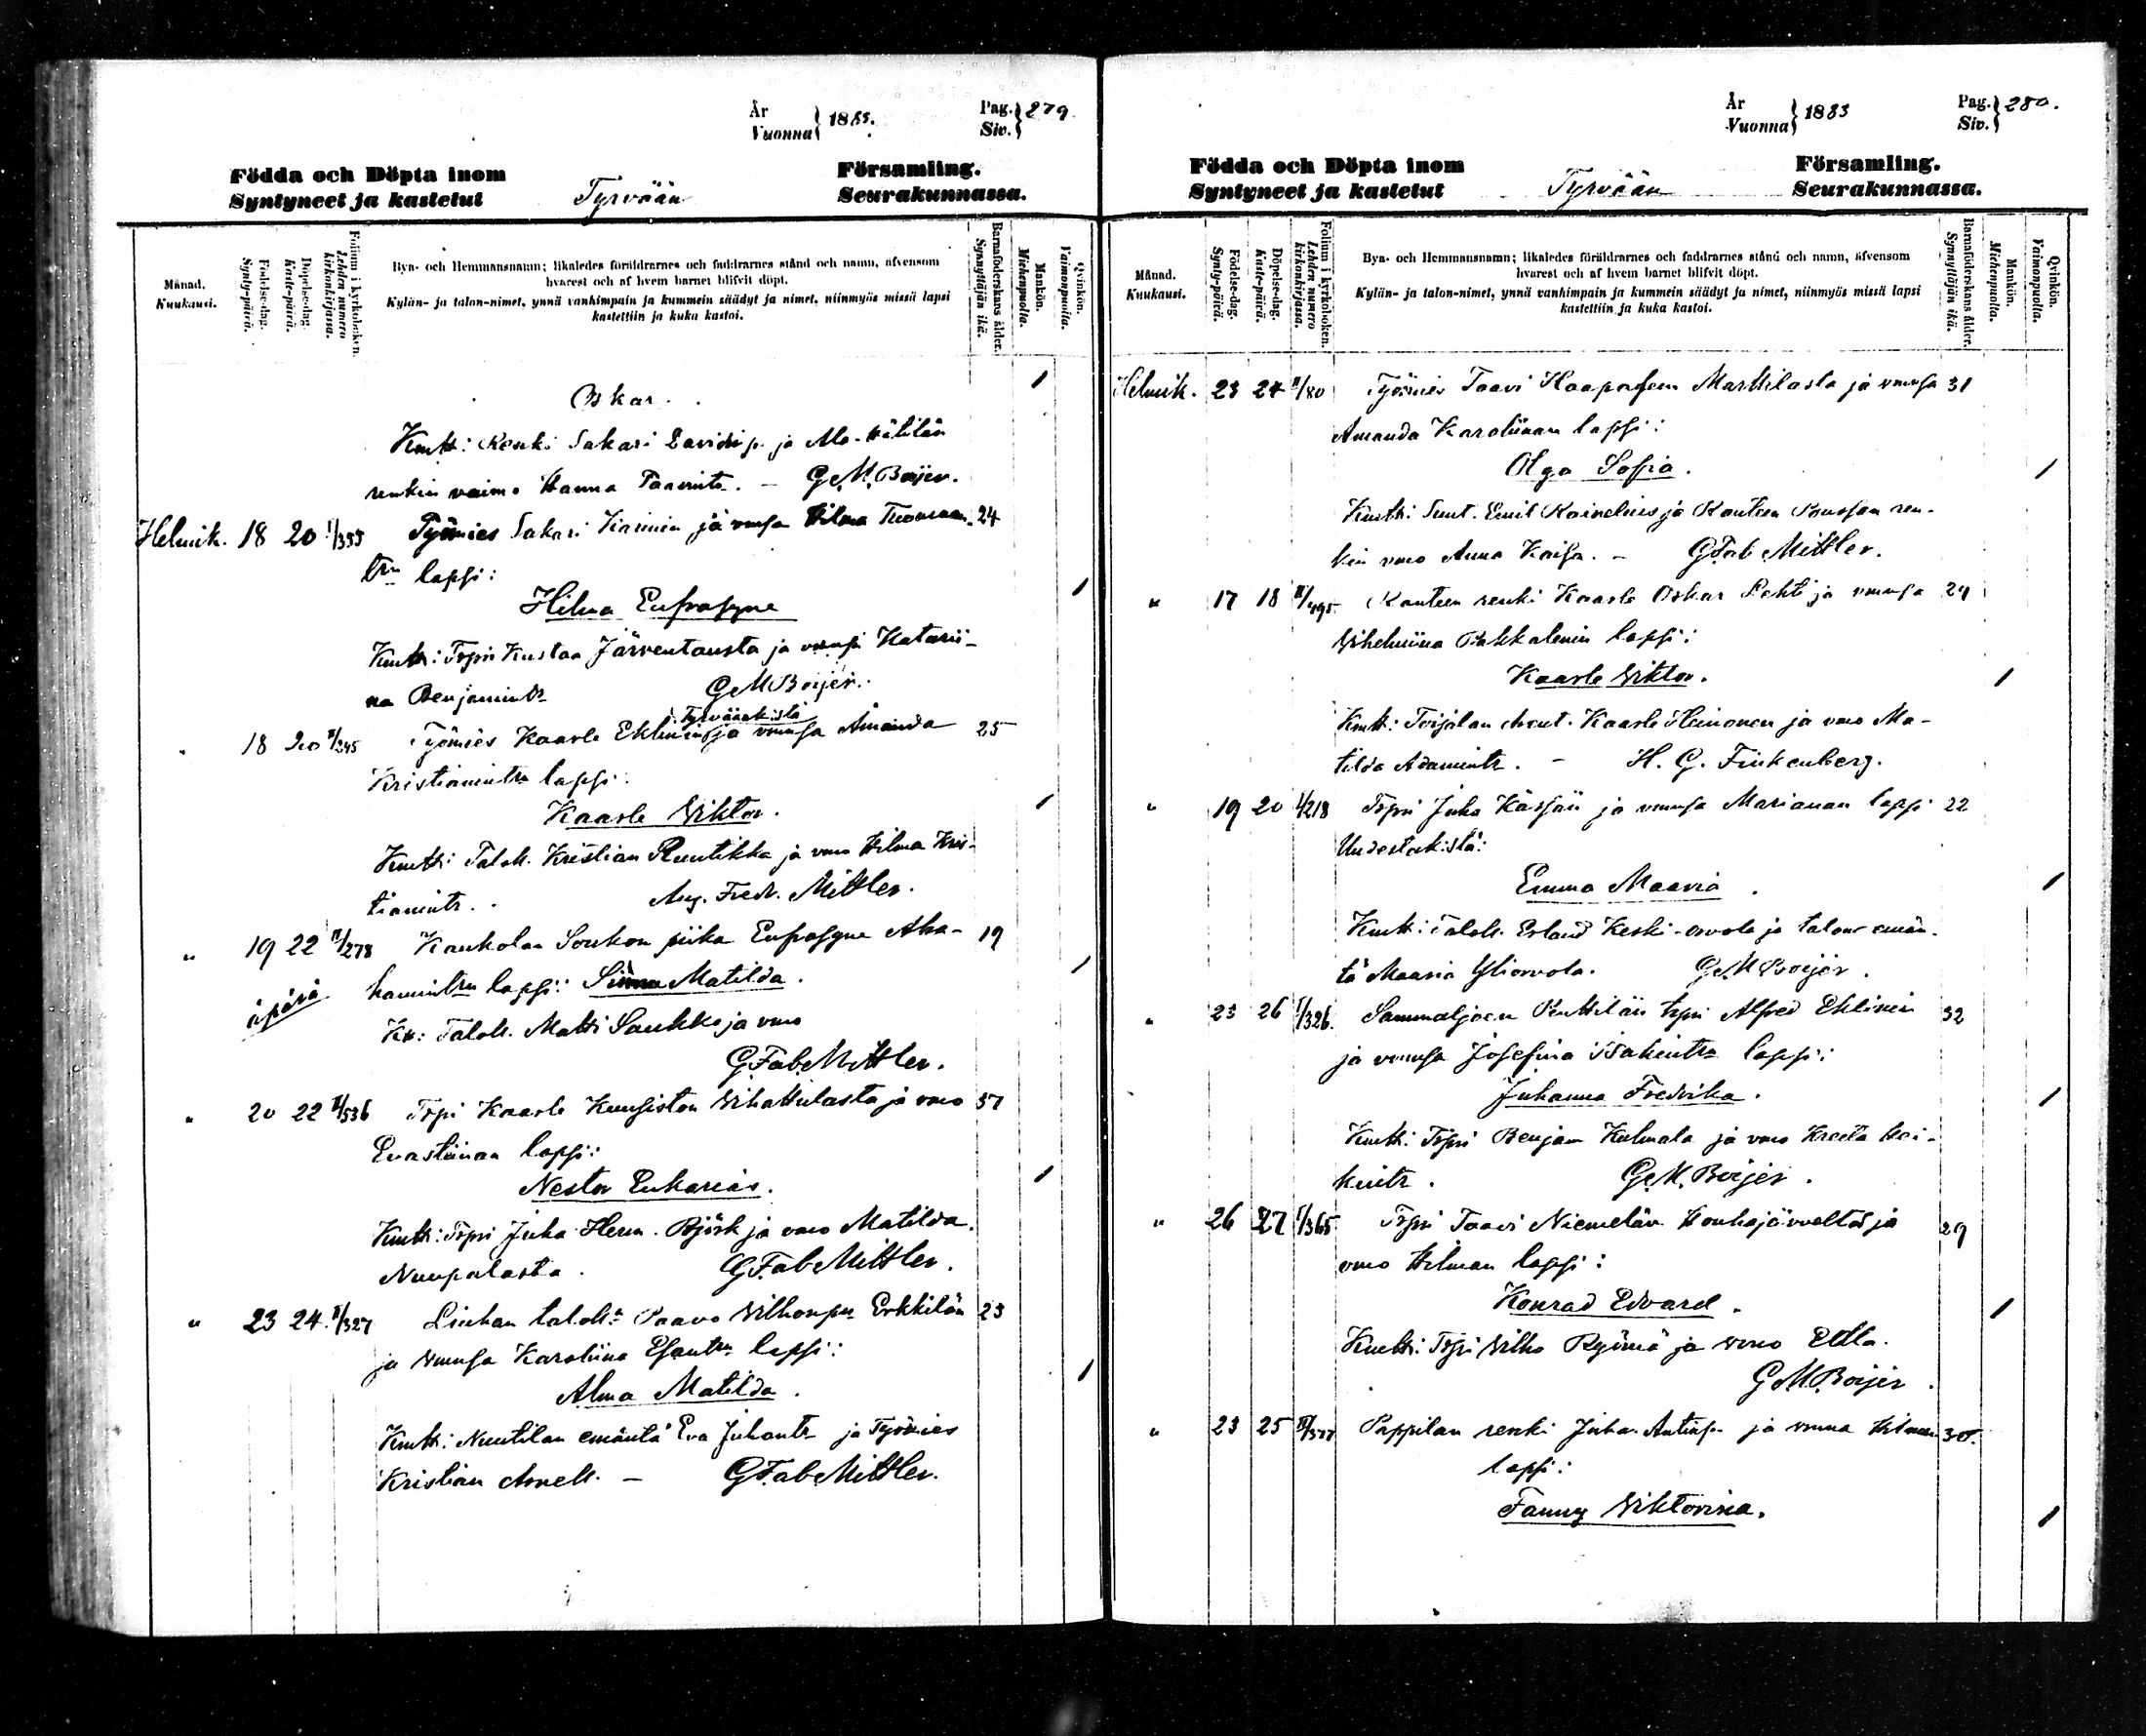 År
Vuonna } 1885.
Pag.
Siv. } 279.
Födda och Döpta inom
Syntyneet ja kastetut
Tyrvään
Församling.
Seurakunnassa.
Månad.
Kuukausi.
Födelse-dag.
Synty-päivä.
Döpelse-dag.
Kaste-päivä.
Folium i kyrkoboken.
Lehden numero kirkonkirjassa.
Bya- och Hemmansnamn; likaledes föräldrarnes och faddrarnes stånd och namn, äfvensom
hvarest och af hvem barnet blifvit döpt.
Kylän- ja talon-nimet, ynnä vanhimpain ja kummein säädyt ja nimet, niinmyös missä lapsi
kastettiin ja kuka kastoi.
Barnaföderskans ålder.
Synnyttäjän ikä.
Mankön.
Miehenpuolia.
Qvinkön.
Vaimonpuolia.
Oskar. 1
Kmtt: Renki Sakari Davidinp. ja Ala-
renkin vaimo Hanna Taavintr. – G.M.Boijer.
Helmik. 18 20 I/355 Työmies Sakari ja vmnsa Hilma 24
lapsi:
Hilma Eufrosyne 1
Kmtt: Trpri Kustaa Järventausta ja vmnsa Katarii-
na Benjamintr GMBoijer.
Tyrväänkistä
" 18 20 I/245 Työmies Kaarle Eklinin ja vmnsa Amanda 25
Kristianintrn lapsi:
Kaarle Wiktor. 1
Kmtt: Taloll. Kristian Ruutikka ja vmo Hilma Kris-
tianintr. Aug. Fredr. Mittler.
" 19 22 II/278 Kaukolan Soukon piika Eufrosyne Abra- 19
äpärä hamintrn lapsi: Matilda. 1
Km: Taloll. Matti Saukko ja vmo
G.Fab.Mittler.
" 20 22 II/536 Trpi Kaarle Kuusiston Wihattulasta ja vmo 37
Evastiinan lapsi:
Nestor Eukarias. 1
Kmtt: Trpri Juha Herm. Björk ja vmo Matilda
Nuupalasta. G.Fab.Mittler.
" 23 24. II/327 Liuhan taloll:n Paavo Wilhonpn Erkkilän 23
ja vmnsa Karoliina Esantrn lapsi:
Alma Matilda. 1
Kmtt: Nuutilan emäntä Eva Juhontr ja Työmies
Kristian – G.Fab.Mittler.
År
Vuonna } 1885
Pag.
Siv. } 280.
Födda och Döpta inom
Syntyneet ja kastetut
Tyrvään
Församling.
Seurakunnassa.
Månad.
Kuukausi.
Födelse-dag.
Synty-päivä.
Döpelse-dag.
Kaste-päivä.
Folium i kyrkoboken.
Lehden numero kirkonkirjassa.
Bya- och Hemmansnamn; likaledes föräldrarnes och faddrarnes stånd och namn, äfvensom
hvarest och af hvem barnet blifvit döpt.
Kylän- ja talon-nimet, ynnä vanhimpain ja kummein säädyt ja nimet, niinmyös missä lapsi
kastettiin ja kuka kastoi.
Barnaföderskans ålder.
Synnyttäjän ikä.
Mankön.
Miehenpuolia.
Qvinkön.
Vaimonpuolia.
Helmik. 23 24 II/80 Työmies Taavi Haapasen Marttilasta ja vmnsa 31
Amanda Karoliinan lapsi:
Olga Sofia. 1
Kmtt: Sunt. Emil Kainelius ja Rauten ren-
kin vmo Anna Kaisa. – GFab Mittler.
" 17 18 II/495 Rauteen renki Kaarle Oskar Lehti ja vmnsa 29
Wilhelmiina Pakkalenin lapsi:
Kaarle Wiktor. 1
Kmtt: Toijalan Kaarle Heinonen ja vmo Ma-
tilda Adamintr. – H. G. Finkenberg.
" 19 20 I/218 Trpri Juha Kärjän ja vmnsa Mariaanan lapsi 22
Uudestakistä:
Emma Maaria. 1
Kmtt: Taloll. Erland Keski-orvola ja talon emän-
tä Maaria Yliorvola. G.M.Boijer.
" 23 26 I/326. Sammaljoen Penttilän trpri Alfred Eklinin 32
ja vmnsa Josefina Isakintrn lapsi:
Juhanna Fredrika. 1
Kmtt: Trpri Benjam Kulmala ja vmo Kreeta Hei-
kintr. G.M.Boijer.
" 26 27 I/365 Trpri Taavi Niemelän Houhajärveltä ja 29
vmo Hilman lapsi:
Konrad Edvard. 1
Kmtt: Trpi Wilho Ryömä ja vmo Edla.
GMBoijer
" 23 25 II/577 Pappilan renki Juha Antinp. ja vmnsa Hilman 30.
lapsi:
Fanny Wiktorina. 1